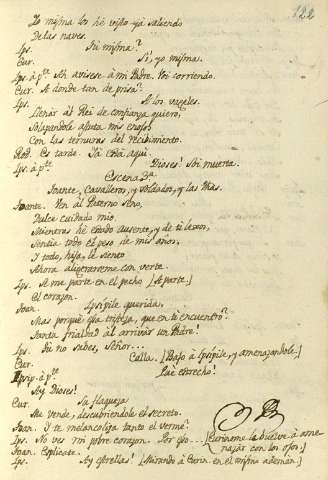 122
Yo misma los hé visto yá saliendo
De las naves.
Ips. Tu misma?
Eur. Si, yo misma.
Ips. à pte. Se avisese à mi Padre. Voi corriendo.
Eur. A donde tan de prisa?
Ips. A los vageles.
Llenár al Rei de confianza quiero,
Solapandole astuta mis enojos
Con las ternuras del recibimiento.
Rod. Es tarde. Yà está aqui.
Ips. à pte. Dioses! Soi muerta.
Escena 3ª.
Toante, Cavalleros, y Soldados, y las dichas.
Toante. Ven al Paterno Seno,
Dulce cuidado mio.
Mientras hé estado ausente, y de ti lexos,
Sentia todo el peso de mis años,
Y todo, hija, le siento
Ahora aligerarme con verte.
Ips. Se me parte en el pecho [A parte.]
El corazon.
Toan. Ipsipile querida,
Mas porquè que tristeza, que en ti encuentro?
Tanta frialdad al arrivár un Padre!
Ips. Tu no sabes, Señor...
Eur. Calla. [Bajo à Ipsipile, y amenazandola.]
Ipsip. à pte. Lance estrecho!
Ay Dioses!
Eur. La flaqueza
Me vende, descubriendole el secreto.
Toan. Y te melancoliza tanto el verme?
Ips. No ves mi pobre corazon. Por eso... [Eurinome la buelve à amenazar con los ojos.]
Toan. Esplicate.
Ips. Ay estrellas! [Mirando à Eurin. en el mismo ademán.]